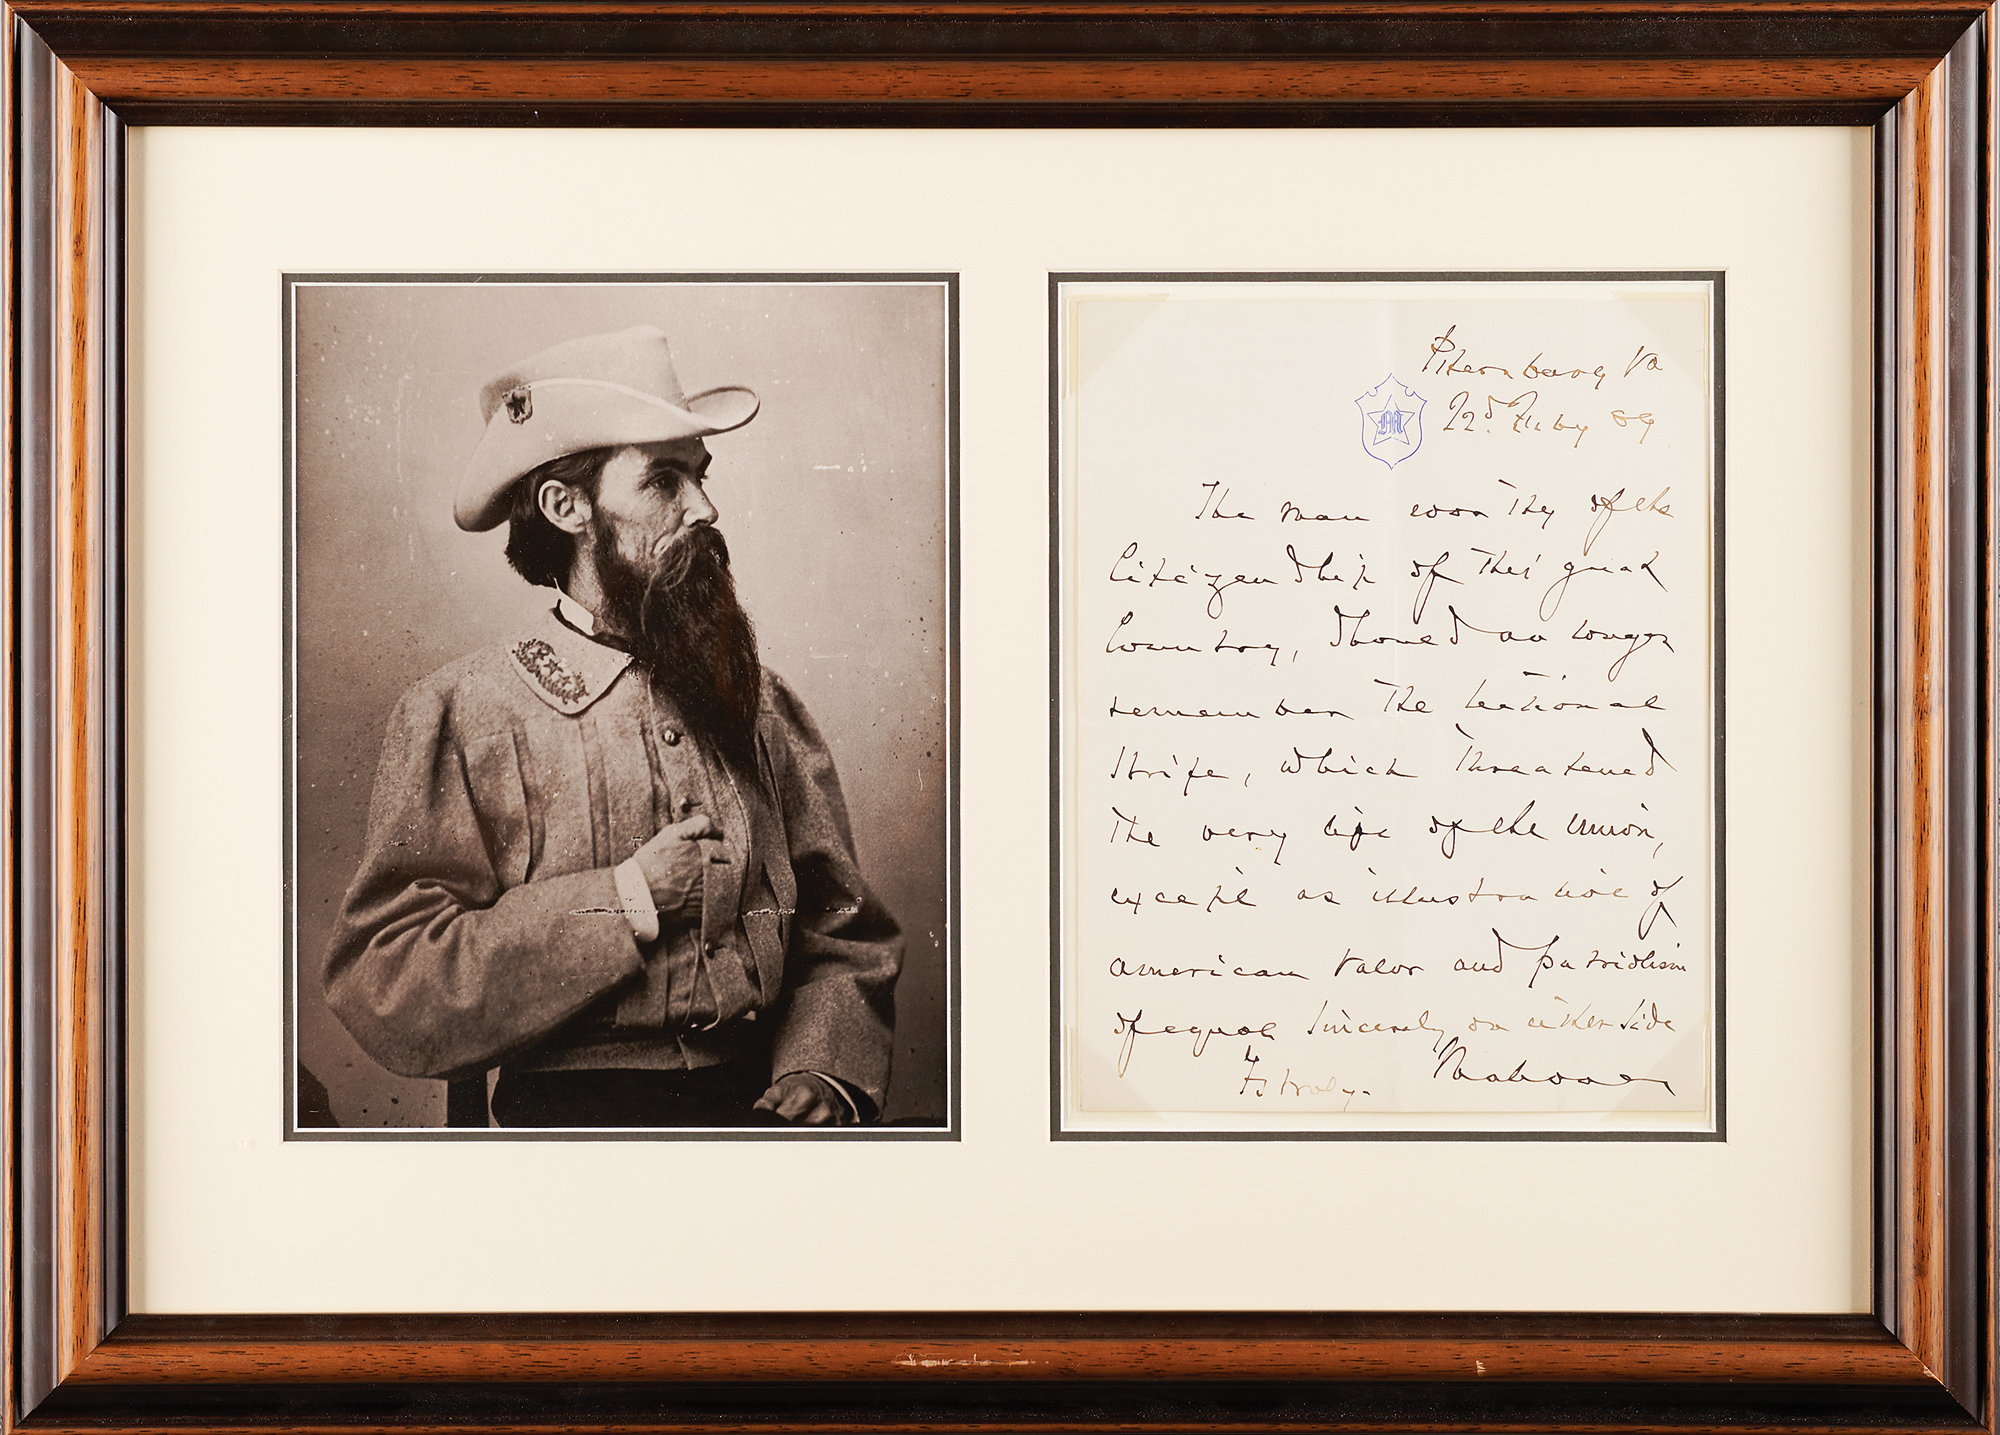 Petersburg Va
M
22d. Feby 89
The man worthy of the
Citizenship of this great
Country, should no longer
remember the sectional
strife, which threatened
the very life of the Union,
except as illustrative of
american valor and patriotism
of equal sincerely on either side
truly.
Mahone